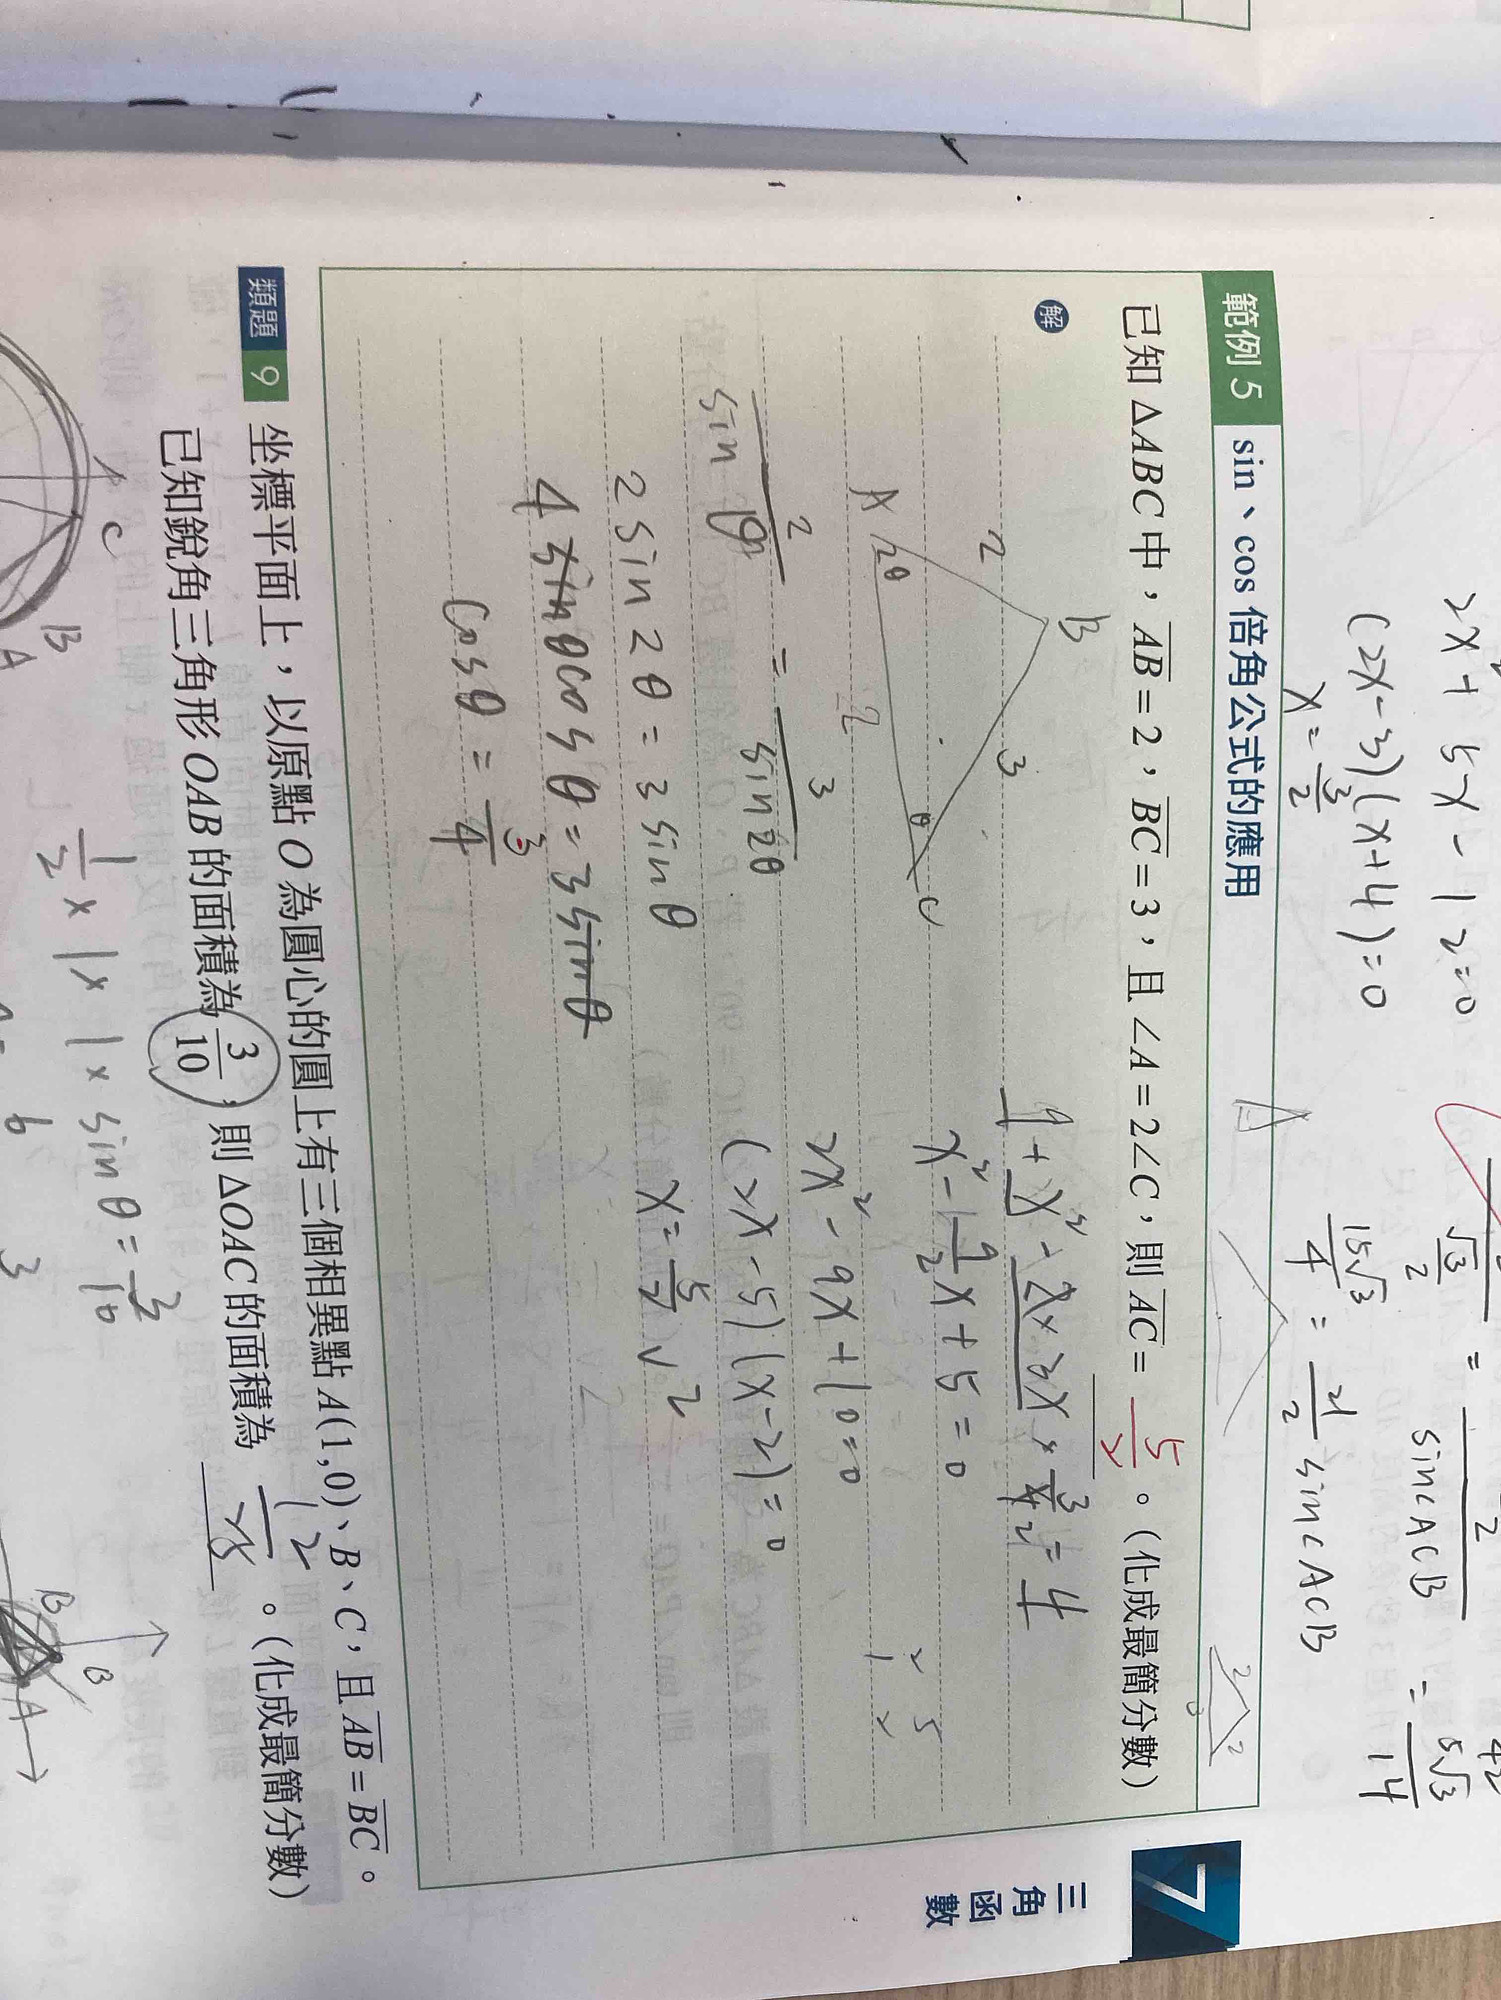 2x² + 5x - 12 = 0
(2x-3)(x+4) = 0
x = 3/2
15√3/4 = 21/2 sin∠ACB
√3/2 = 2/sin∠ACB
= 5√3/14
範例 5 sin、cos 倍角公式的應用
已知 △ABC 中，AB = 2，BC = 3，且 ∠A = 2∠C，則 AC = 5/2 。（化成最簡分數）
解
B
2
3
A
2θ
θ
C
2
2/sin θ = 3/sin2θ
2 sin 2θ = 3 sin θ
4 sinθcosθ = 3 sinθ
cosθ = 3/4
9 + x² - 2×3x × 3/4 = 4
x² - 9/2x + 5 = 0
2x² - 9x + 10 = 0
(2x-5)(x-2) = 0
x = 5/2 ∨ 2
2 5
1 2
7
三角函數
類題 9 坐標平面上，以原點 O 為圓心的圓上有三個相異點 A(1,0)、B、C，且 AB = BC。
已知銳角三角形 OAB 的面積為 3/10，則 △OAC 的面積為 12/25 。（化成最簡分數）
1/2 × 1 × 1 × sin θ = 3/10
C
B
A
B
B
A